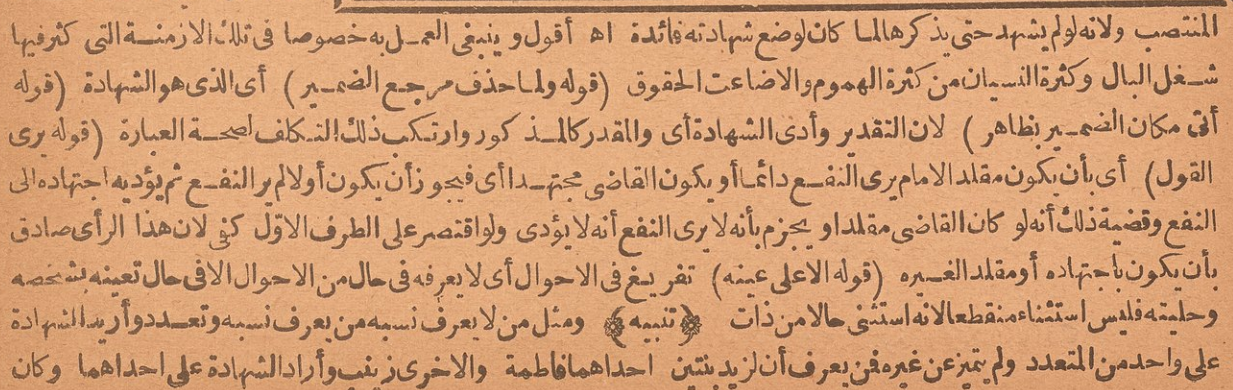 المنتصب ولانه لولم يشهد حتى يذكرها لما كان لوضع شهادته فائدة اه أقول وينبغى العمل به خصوصا فى تلك الازمنة التى كثر فيها
شغل البال وكثرة النسيان من كثرة الهموم والا ضاعت الحقوق (قوله ولما حذف مرجع الضمير) أى الذى هو الشهادة (قوله
أتى مكان الضمير بظاهر) لان التقدير وأدى الشهادة أى والمقدر كالمذكور وارتكب ذلك التكلف لصحة العبارة (قوله يرى
القول) أى بأن يكون مقلد الامام يرى النفع دائما أو يكون القاضى مجتهدا أى فيجوز أن يكون أولا لم ير النفع ثم يؤديه اجتهاده الى
النفع وقضية ذلك أنه لو كان القاضى مقلدا و يجزم بأنه لا يرى النفع أنه لا يؤدى ولو اقتصر على الطرف الاول كفى لان هذا الرأى صادق
بأن يكون باجتهاده أو مقلد الغيره (قوله الاعلى عينه) تفريغ فى الاحوال أى لا يعرفه فى حال من الاحوال الا فى حال تعينه بشخصه
وحليته فليس استثناء منقطعا لانه استثنى حالا من ذات ﴿تنبيه﴾ ومثل من لا يعرف نسبه من يعرف نسبه وتعدد وأريد الشهادة
على واحد من المتعدد ولم يتميز عن غيره فمن يعرف أن لزيد بنتين احداهما فاطمة والاخرى زينب وأراد الشهادة على احداهما وكان